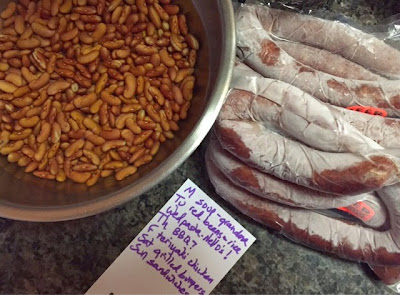 M soup - grandma
Tu red beans - rice
W pasta - Nello's!
Th BBQ?
F teriyaki chicken
Sat grilled burgers
Sun sandwiches